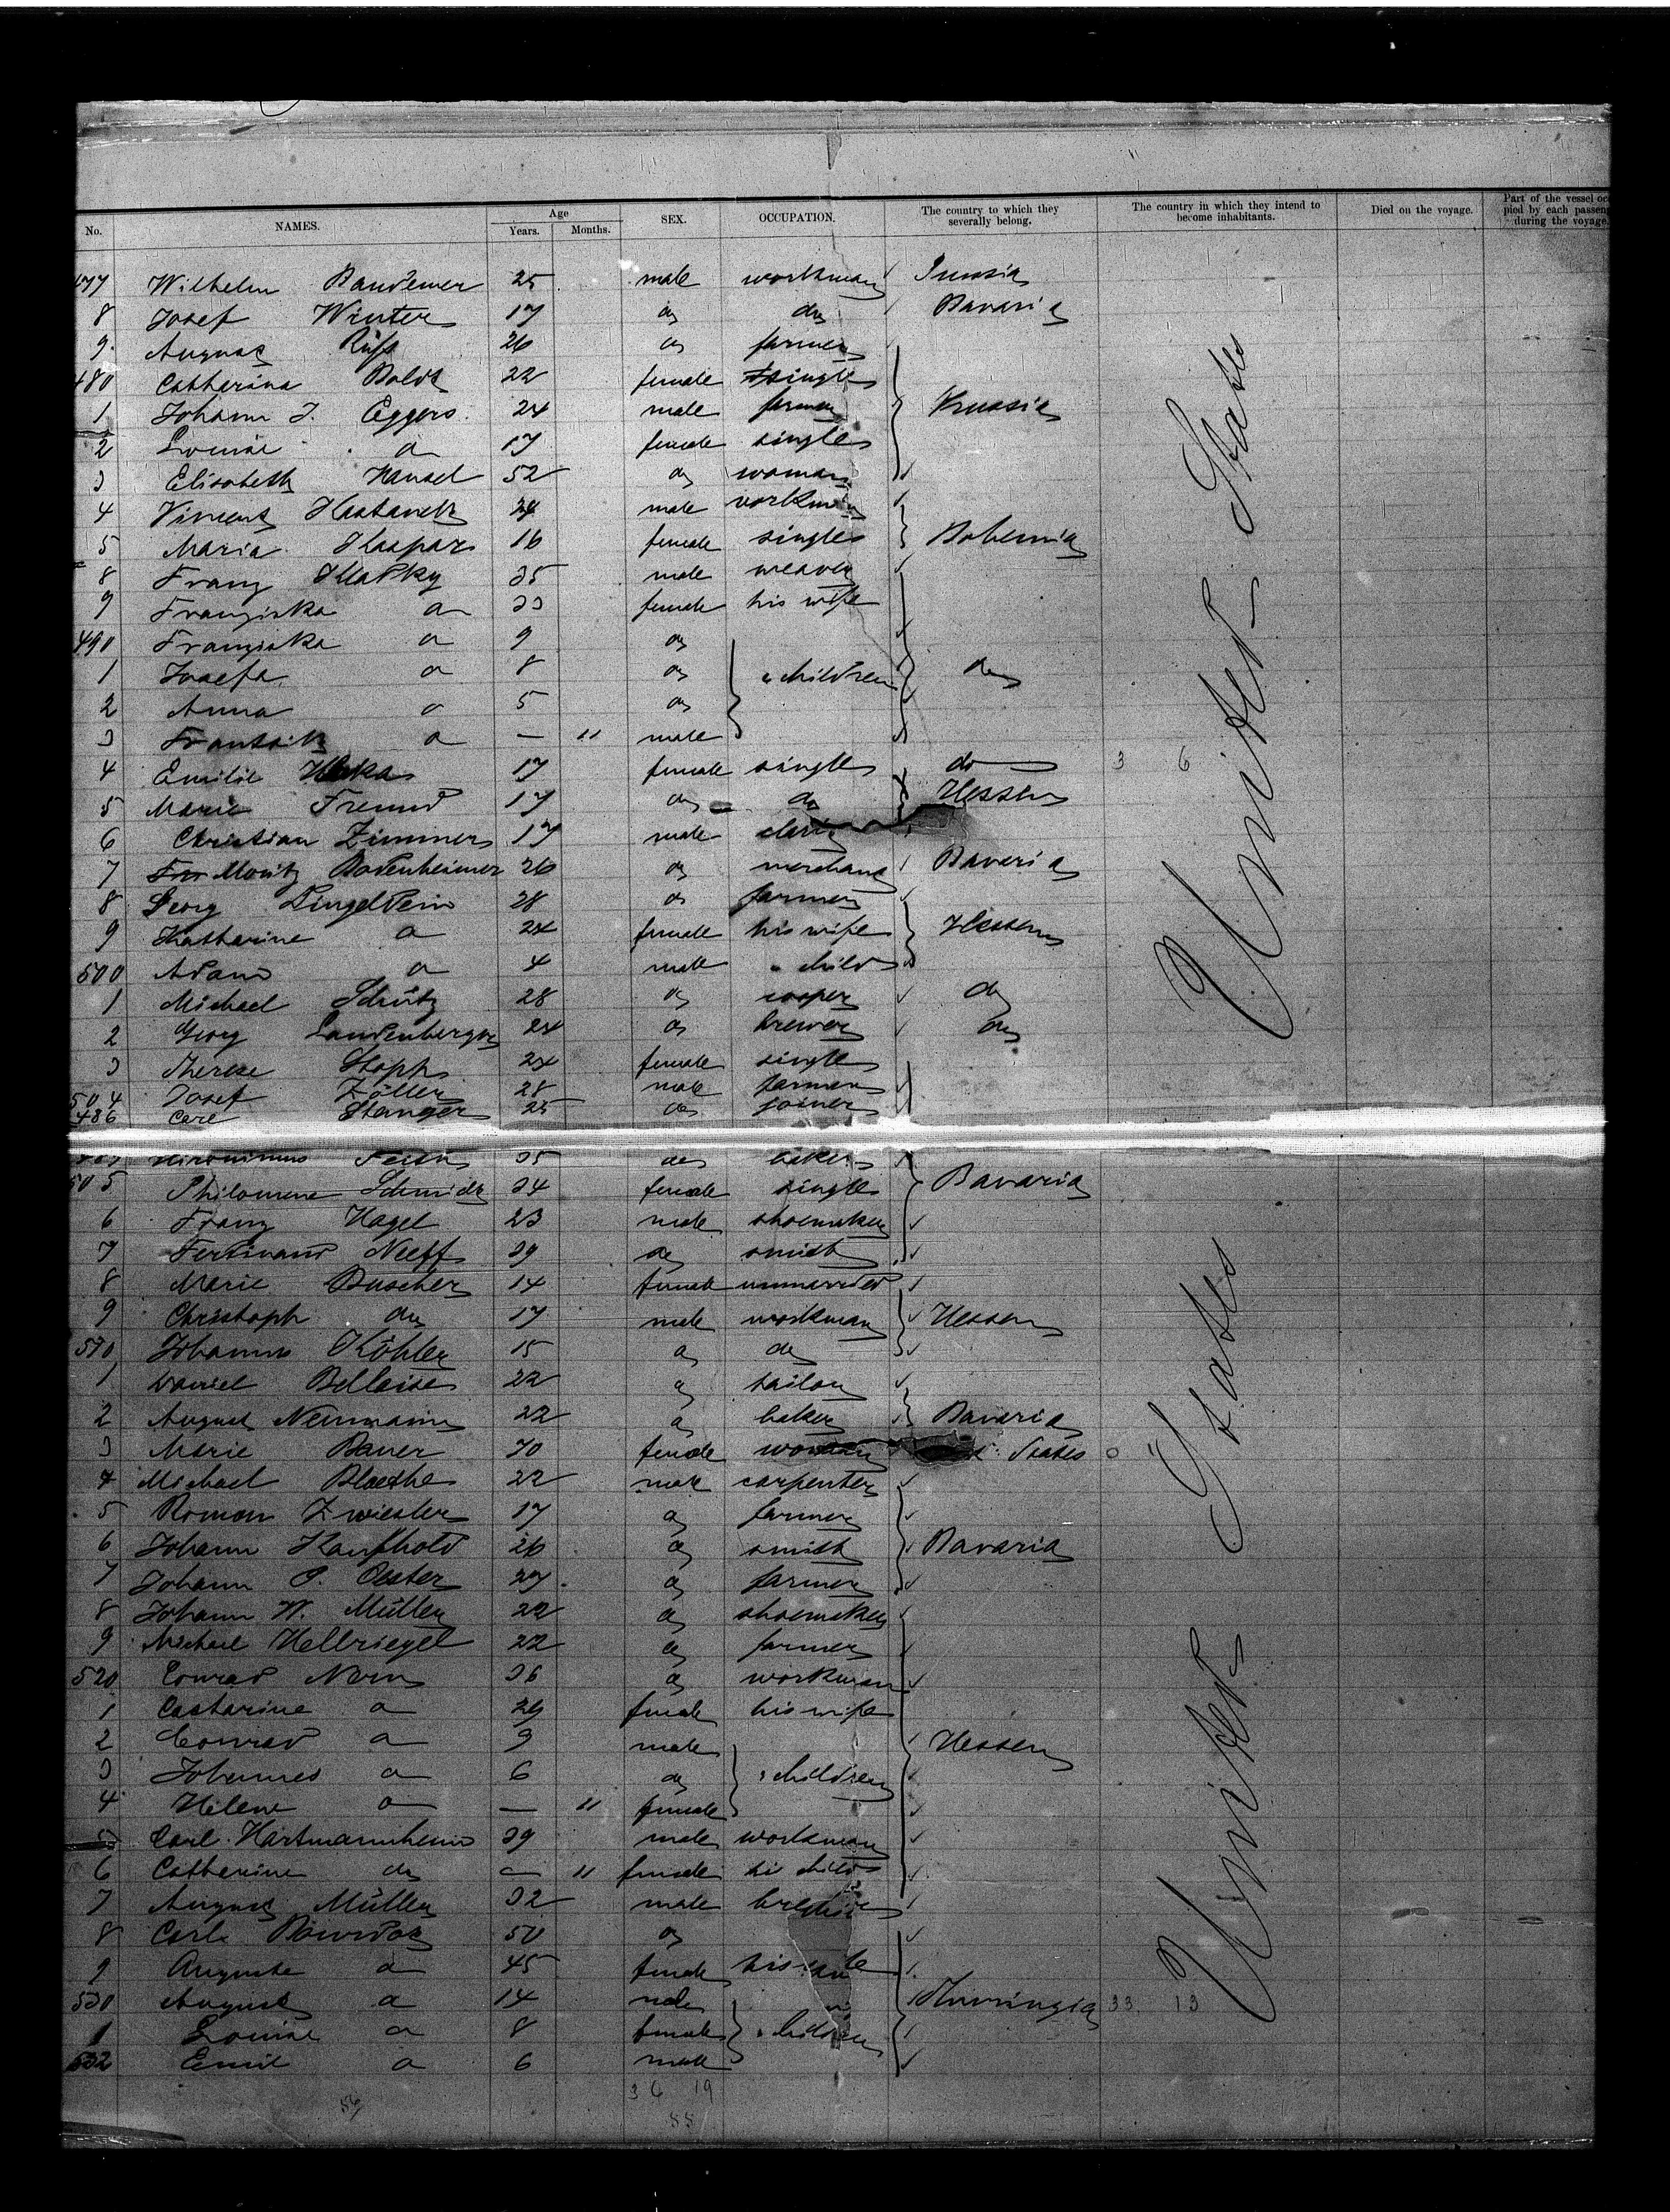 No. NAMES. Age Years. Months. SEX. OCCUPATION. The country to which they severally belong. The country in which they intend to become inhabitants. Died on the voyage. Part of the vessel occupied by each passenger during the voyage.
477 Wilhelm Bandemer 25 male workman
8 Josef Winter 17 do do Bavaria
9 August Rüß 26 do farmer
480 Catharina Boldt 22 female single
1 Johann J. Eggers 24 male farmer Prussia
2 Louise do 17 female single
3 Elisabeth Hansel 52 do woman
4 Vincent 24 male workman
5 Maria Kaspar 16 female single Bohemia
8 Franz Klapky 35 male weaver
9 Franziska do 33 female his wife
490 Franziska do 9 do
1 Josefa do 8 do children do
2 Anna do 5 do
3 Frantisik do — 11 male
4 Emilie 17 female single do 3 6
5 Marie Freund 17 do do Hessen
6 Christian Zimmer 17 male
7 Moritz Bodenheimer 26 do merchant Bavaria
8 Georg Dingeldein 28 do farmer
9 Katharine do 24 female his wife Hessen
500 Adam do 4 male child
1 Michael Schütz 28 do cooper do
2 Georg Landenberger 24 do brewer do
3 Therese Stoph 24 female single
504 Josef Zöller 28 male farmer
486 Carl Stanger 25 do joiner
Hironimus 35 do baker
505 Philomene Schmidt 24 female single Bavaria
6 Franz Hagel 23 male shoemaker
7 Ferdinand Neeff 39 do smith
8 Marie Buscher 14 female unmarried
9 Christoph do 17 male workman Hessen
510 Johannes Köhler 15 do do
1 Daniel Bellaise 22 do tailor
2 August Neumann 22 do baker Bavaria
3 Marie Bauer 30 female woman States
4 Michael Blaethe 22 male carpenter
5 Roman Zwiesler 17 do farmer
6 Johann Kaufhold 26 do smith Bavaria
7 Johann P. Oester 27 do farmer
8 Johann W. Müller 22 do shoemaker
9 Michael Hellriegel 22 do farmer
520 Conrad Norn 36 do workman
1 Catharine do 29 female his wife
2 Conrad do 9 male Hessen
3 Johannes do 6 do children
4 Helene do — 11 female
5 Carl Hartmannhenn 39 male workman
6 Catherine do — 11 female his child
7 August Müller 32 male
8 Carl 50 do
9 Auguste do 45 female his
530 August do 14 male Thuringia 33 13
1 Louise do 8 female children
532 Emil do 6 male
36 19
55
United States
United States